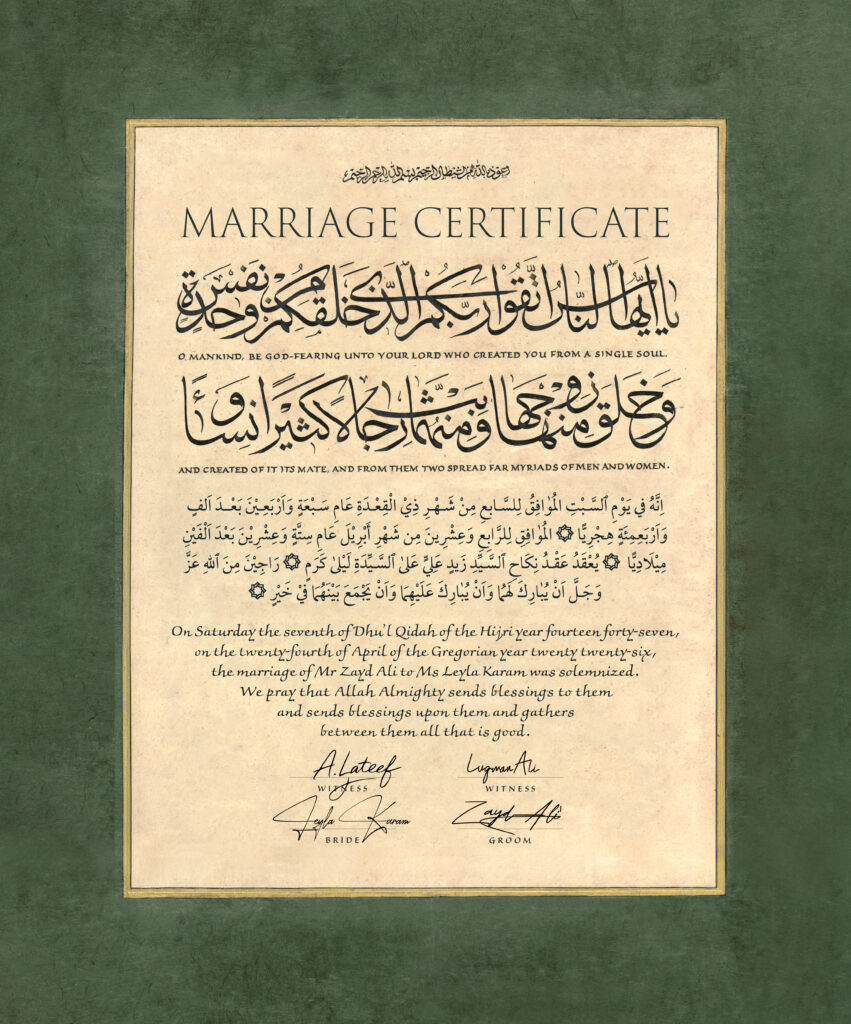 اعوذ بالله من الشيطان الرجيم بسم الله الرحمن الرحيم
MARRIAGE CERTIFICATE
يَا أَيُّهَا النَّاسُ اتَّقُوا رَبَّكُمُ الَّذِي خَلَقَكُمْ مِنْ نَفْسٍ وَاحِدَةٍ
O, MANKIND, BE GOD-FEARING UNTO YOUR LORD WHO CREATED YOU FROM A SINGLE SOUL,
وَخَلَقَ مِنْهَا زَوْجَهَا وَبَثَّ مِنْهُمَا رِجَالًا كَثِيرًا وَنِسَاءً
AND CREATED OF IT ITS MATE, AND FROM THEM TWO SPREAD FAR MYRIADS OF MEN AND WOMEN.
اِنَّهُ فِي يَوْمِ السَّبْتِ الْمُوَافِقُ لِلسَّابِعِ مِنْ شَهْرِ ذِيْ الْقِعْدَةِ عَامِ سَبْعَةٍ وَاَرْبَعِيْنَ بَعْدَ اَلفٍ
وَاَرْبَعِمِئَةٍ هِجْرِيًّا ۞ الْمُوَافِقِ لِلرَّابِعِ وَعِشْرِينَ مِن شَهْرِ أَبْرِيْلَ عَامِ سِتَّةٍ وَعِشْرِيْنَ بَعْدَ اَلْفَيْنِ
مِيْلَادِيًّا ۞ يُعْقَدُ عَقْدُ نِكَاحِ السَّيِّدِ زَيدٍ عَلِيٍّ عَلَىٰ السَّيِّدَةِ لَيْلَىٰ كَرَمٍ ۞ رَاجِيْنَ مِنَ اللهِ عَزَّ
وَجَلَّ اَنْ يُبَارِكَ لَهُمَا وَاَنْ يُبَارِكَ عَلَيْهِمَا وَاَنْ يَجْمَعَ بَيْنَهُمَا فِيْ خَيْرٍ ۞
On Saturday the seventh of Dhu'l Qidah of the Hijri year fourteen forty-seven,
on the twenty-fourth of April of the Gregorian year twenty twenty-six,
the marriage of Mr Zayd Ali to Ms Leyla Karam was solemnized.
We pray that Allah Almighty sends blessings to them
and sends blessings upon them and gathers
between them all that is good.
A. Lateef Luqman Ali
WITNESS WITNESS
Leyla Karam Zayd Ali
BRIDE GROOM